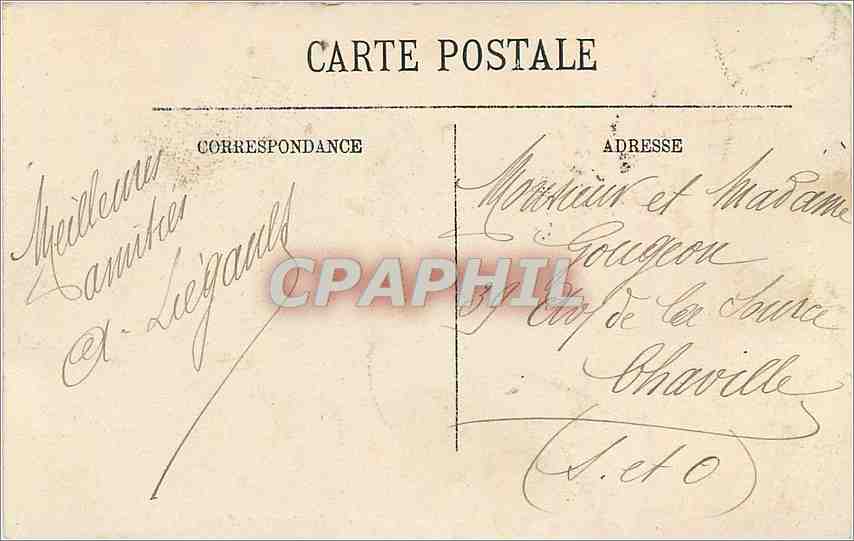 CARTE POSTALE
CORRESPONDANCE
Meilleures
amitiés
A. Liégault
ADRESSE
Monsieur et Madame
Gougeon
39 de la Source
Chaville
(S. et O)
CPAPHIL